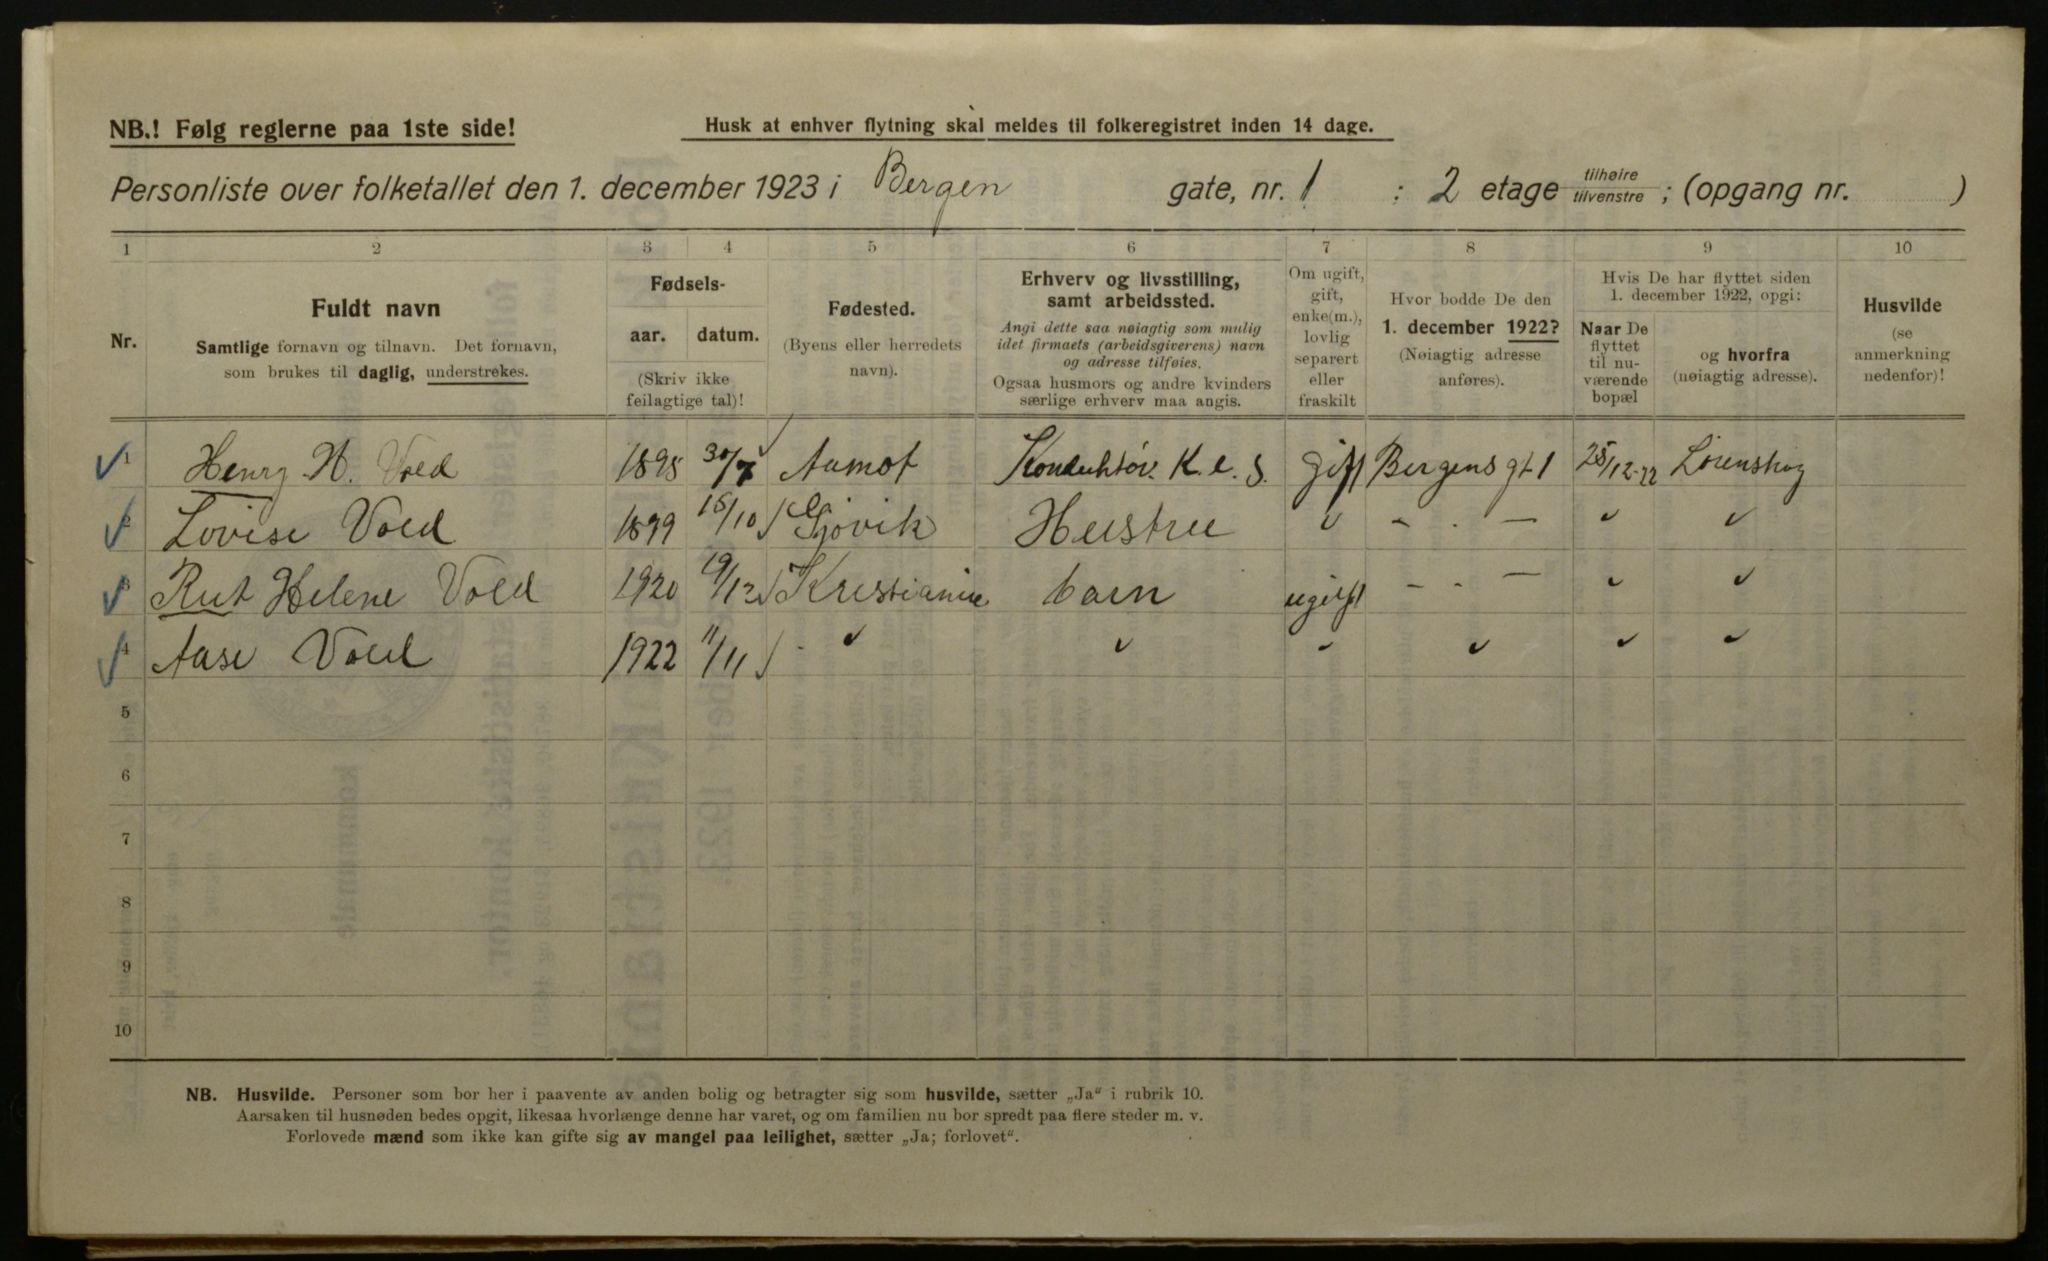 NB.! Følg reglerne paa 1ste side!
Husk at enhver flytning skal meldes til folkeregistret inden 14 dage.
Personliste over folketallet den 1. december 1923 i Bergen gate, nr. 1 : 2 etage tilhøire tilvenstre ; (opgang nr. )
1 2 3 4 5 6 7 8 9 10
Nr.
Fuldt navn
Samtlige fornavn og tilnavn. Det fornavn,
som brukes til daglig, understrekes.
Fødsels-
aar. datum.
(Skriv ikke
feilagtige tal)!
Fødested.
(Byens eller herredets
navn).
Erhverv og livsstilling,
samt arbeidssted.
Angi dette saa nøiagtig som mulig
idet firmaets (arbeidsgiverens) navn
og adresse tilføies.
Ogsaa husmors og andre kvinders
særlige erhverv maa angis.
Om ugift,
gift,
enke(m.),
lovlig
separert
eller
fraskilt
Hvor bodde De den
1. december 1922?
(Nøiagtig adresse
anføres).
Hvis De har flyttet siden
1. december 1922, opgi:
Naar De
flyttet
til nu-
værende
bopæl
og hvorfra
(nøiagtig adresse).
Husvilde
(se
anmerkning
nedenfor)!
1 Henry H. Vold 1898 30/7 Aamot Konduktør. K. e. S. gift Bergens gt 1 28/12-22 Lørenskog
2 Lovise Vold 1899 15/10 Gjøvik Hustru " - . - " "
3 Rut Helene Vold 1920 19/12 Kristiania barn ugift - - - " "
4 Aase Vold 1922 11/11 " " " " " "
5
6
7
8
9
10
NB. Husvilde. Personer som bor her i paavente av anden bolig og betragter sig som husvilde, sætter „Ja“ i rubrik 10.
Aarsaken til husnøden bedes opgit, likesaa hvorlænge denne har varet, og om familien nu bor spredt paa flere steder m. v.
Forlovede mænd som ikke kan gifte sig av mangel paa leilighet, sætter „Ja; forlovet“.